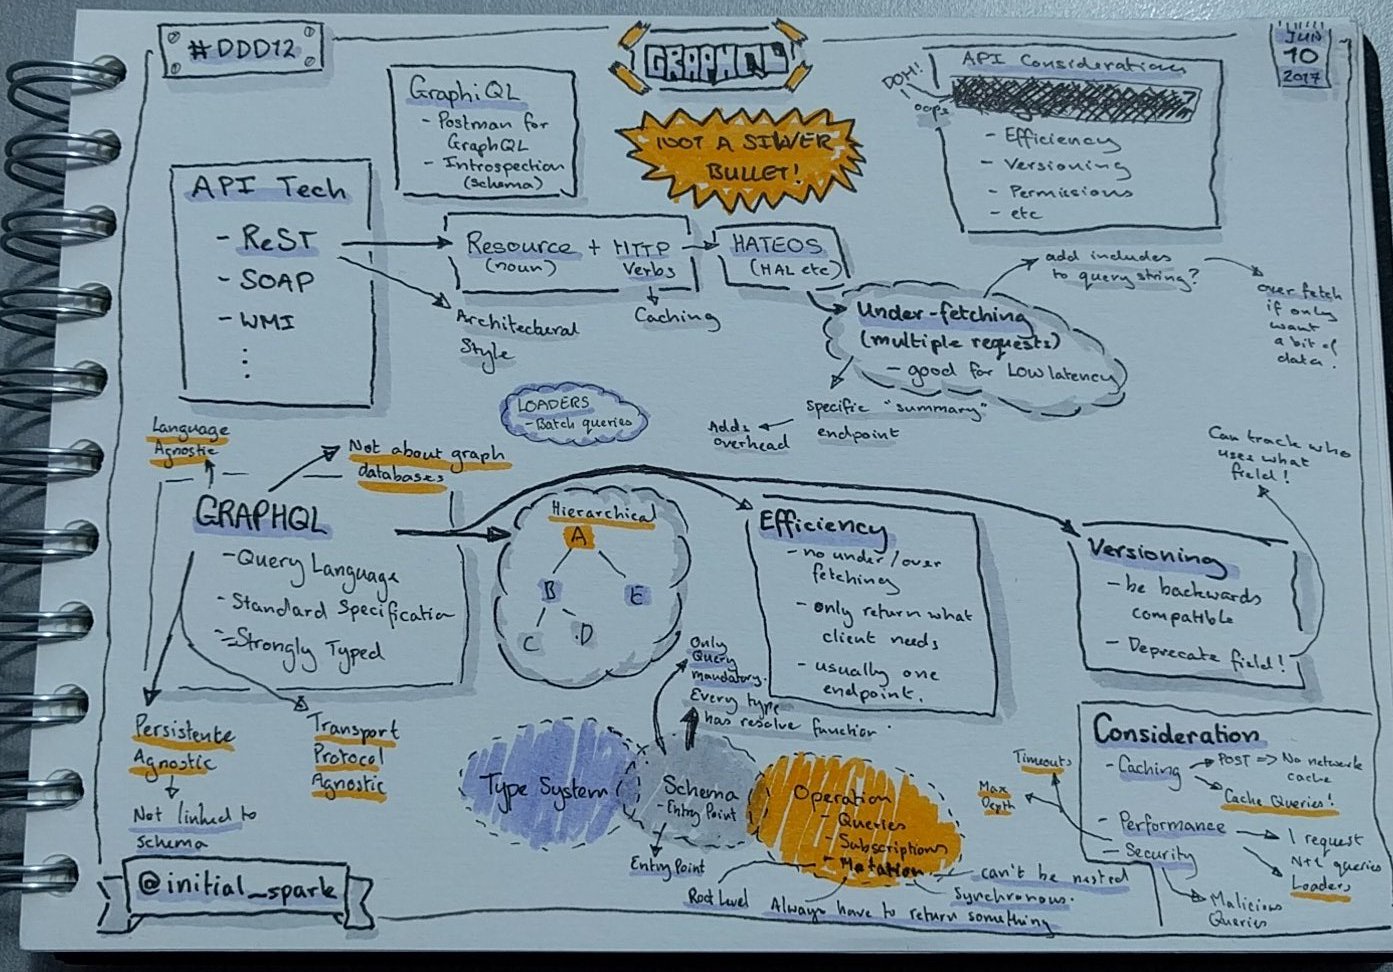 #DDD12
GRAPHQL
JUN
10
2017
NOT A SILVER
BULLET!
GraphiQL
- Postman for
GraphQL
- Introspection
(schema)
API Considerations
DOH!
oops
- Efficiency
- Versioning
- Permissions
- etc
API Tech
- ReST
- SOAP
- WMI
Resource + HTTP
(noun) Verbs
Caching
Architectural
Style
HATEOS
(HAL etc)
Under-fetching
(multiple requests)
- good for Low latency
add includes
to query string?
over fetch
if only
want
a bit of
data!
specific "summary"
endpoint
Adds
overhead
LOADERS
- Batch queries
Language
Agnostic
Not about graph
databases
GRAPHQL
- Query Language
- Standard Specification
- Strongly Typed
Persistente
Agnostic
Not linked to
schema
Transport
Protocol
Agnostic
Hierarchical
A
B E
C D
Efficiency
- no under/over
fetching
- only return what
client needs
- usually one
endpoint.
Versioning
- be backwards
compatible
- Deprecate field!
Can track who
uses what
field!
Only
Query
mandatory.
Every type
has resolve function.
Type System
Schema
- Entry Point
Entry Point
Operation
- Queries
- Subscriptions
- Mutation
Root Level
Always have to return something
can't be nested
synchronous.
Consideration
- Caching
POST => No network
cache
Cache Queries!
- Performance
1 request
N+1 queries
Loaders
- Security
Timeouts
Max
Depth
Malicious
Queries
@initial_spark